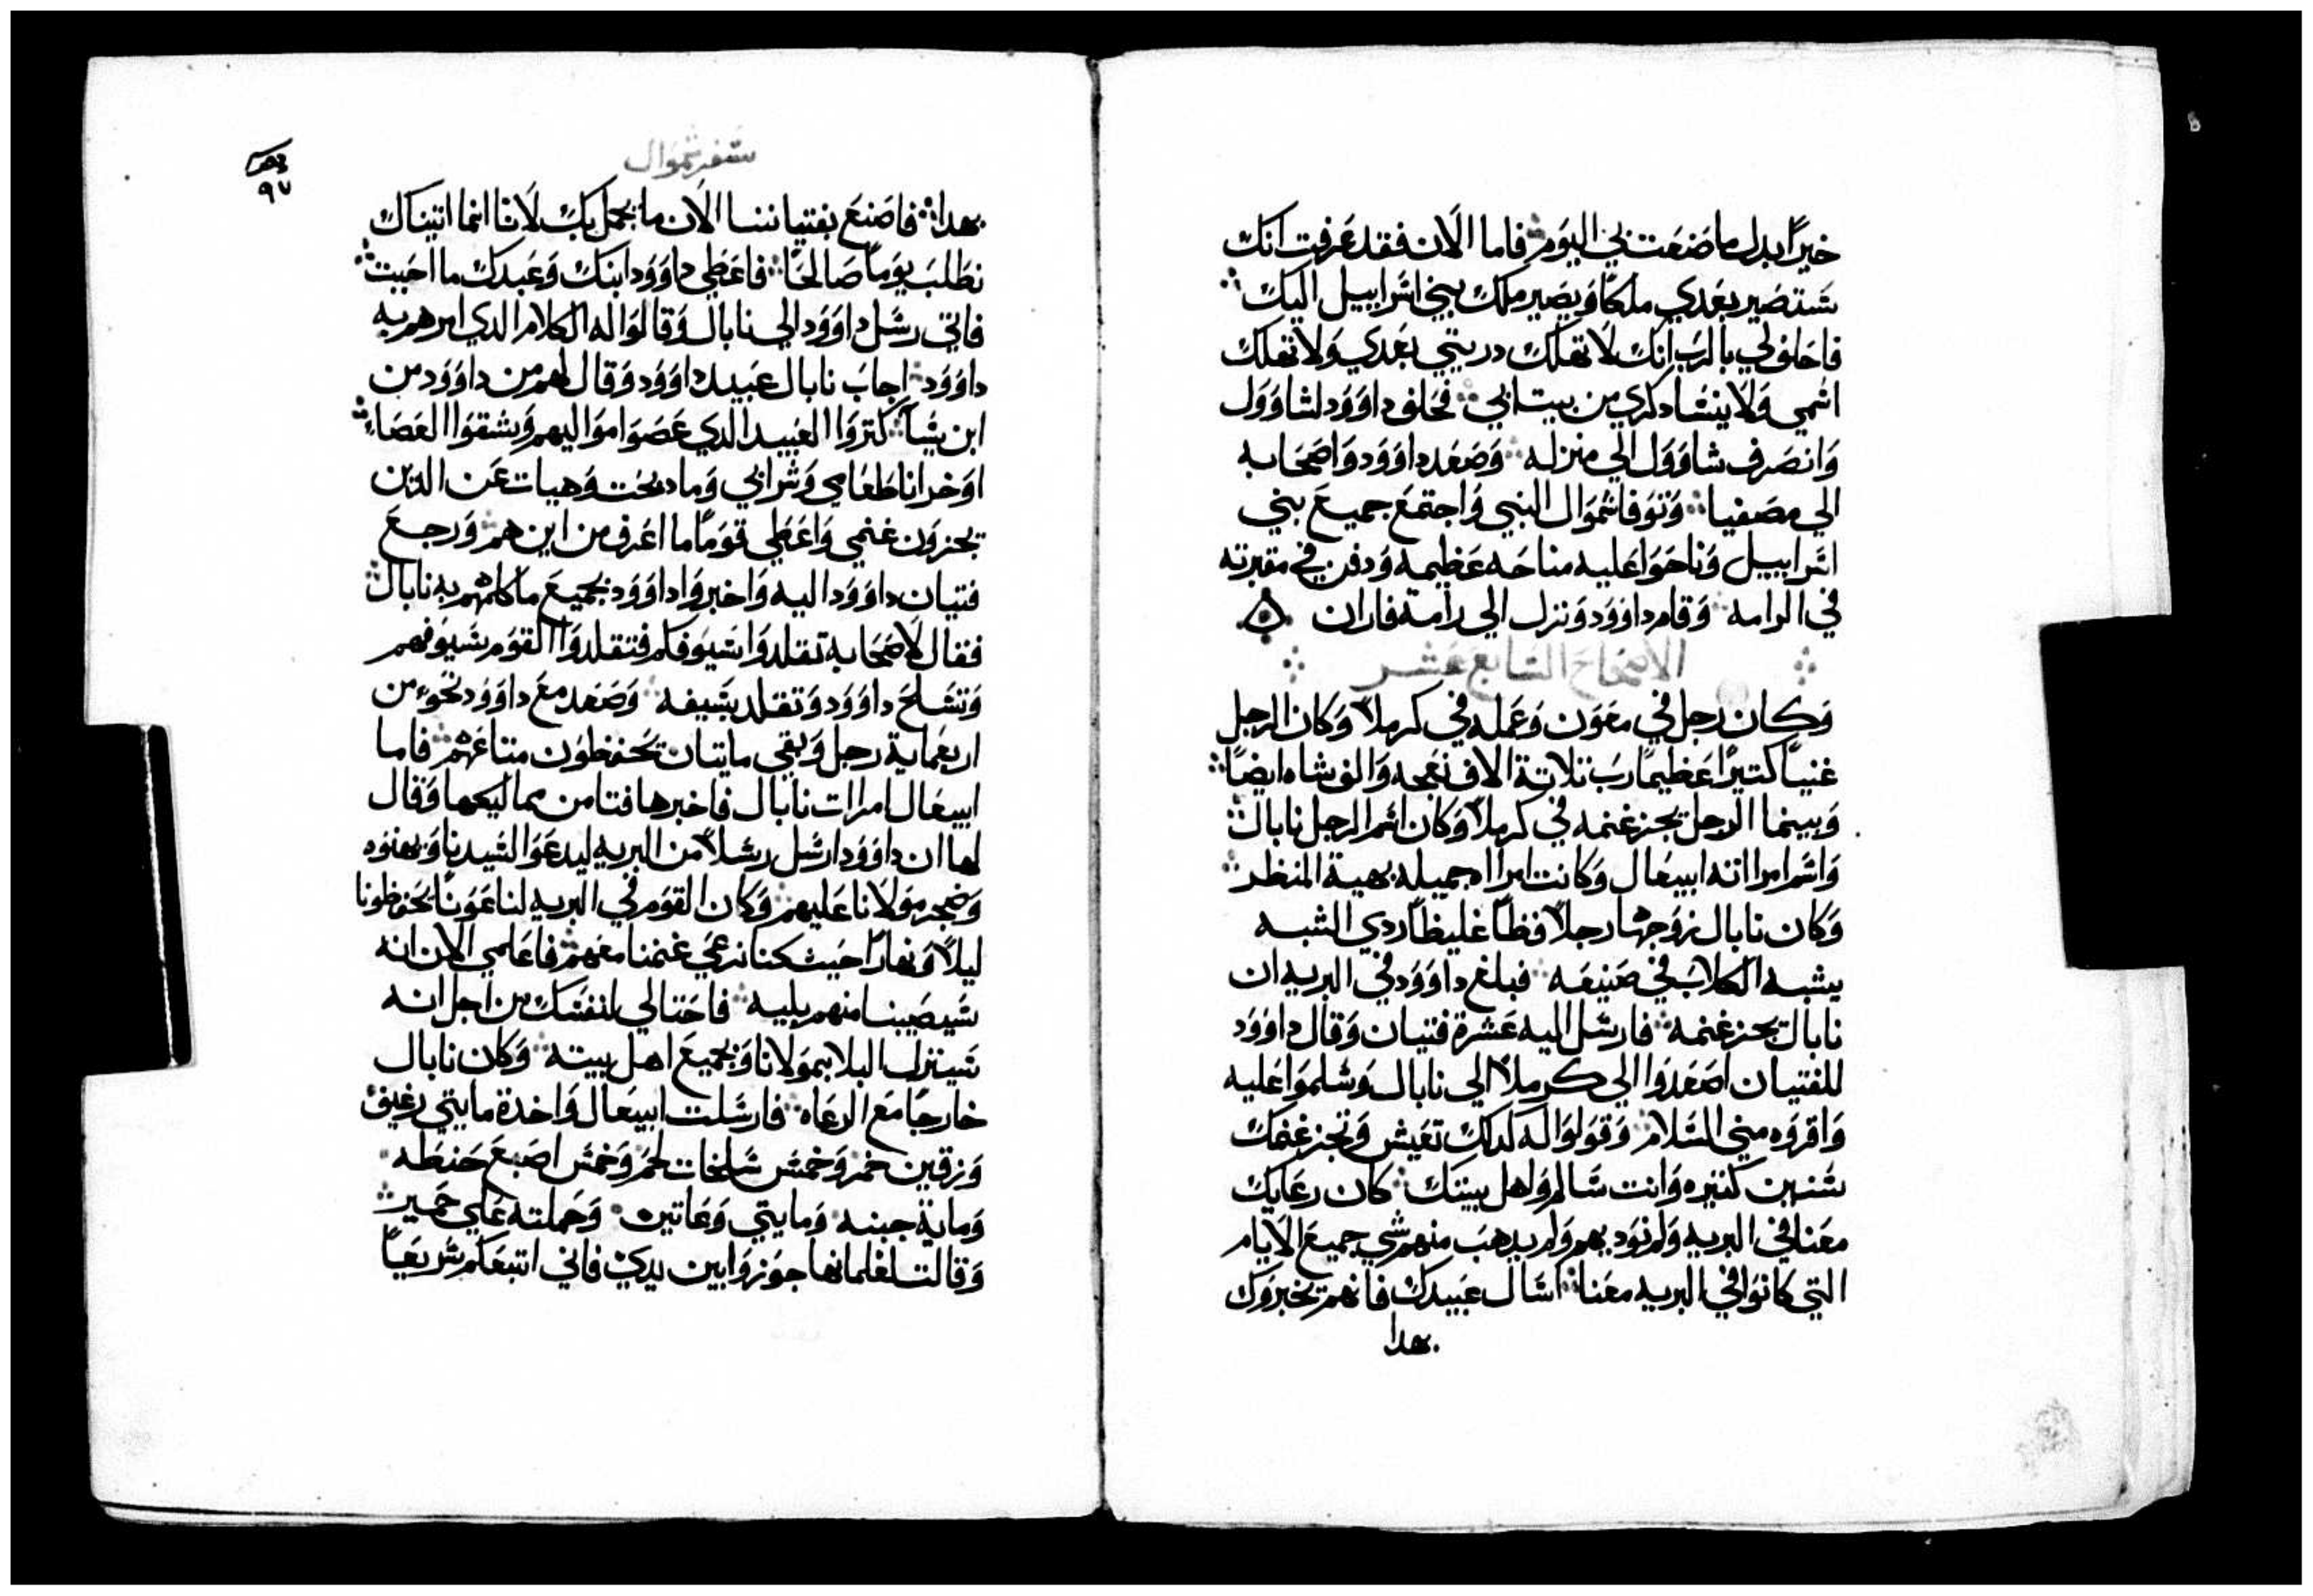 خيرًا بدل ما صنعت بي اليوم ۞ فاما الان فقد عرفت انك
ستصير بعدي ملكًا ويصير ملك بيني اسراييل اليك
فاحلف لي بالرب انك لا تهلك دريتي بعدي ولا تهلك
اسمي ولا ينسا دكري من بيت ابي فحلف داوود لشاوول
وانصرف شاوول الي منزله وصعد داوود واصحابه
الي مصفيا وتوفا شموال النبي واجتمع جميع بني
اسراييل وناحوا عليه مناحه عظيمه ودفن في مقبرته
في الرامه وقام داوود ونزل الي رامة فاران
الاصحاح السابع عشر
وكان رجل في معون وعمله في كرملا وكان الرجل
غنيًا كتيرًا عظيمًا رب تلاتة الاف نعجه والف شاه ايضًا
وبينما الرجل يجز غنمه في كرملا وكان اسم الرجل نابال
واسم امراته ابيغال وكانت امراه جميله بهية المنظر
وكان نابال زوجها رجلاً فظًا غليظًا ردي الشبه
يشبه الكلاب في صنيعه فبلغ داوود في البريه ان
نابال يجز غنمه فارسل اليه عشرة فتيان وقال داوود
للفتيان اصعدوا الي كرملا الي نابال وسلموا عليه
واقروه مني السلام وقولوا له كدلك تعيش وتجز غنمك
سنين كتيره وانت سالم واهل بيتك كان رعايك
معنا في البريه ولم نود بهم ولم يدهب منهم شي جميع الايام
التي كانوا في البريه معنا اسال عبيدك فانهم يخبروك
بهدا
سفر شموال
٩٧
بهدا فاصنع بفتياننا الان ما يجمل بك لانا انما اتيناك
نطلب يومًا صالحًا فاعطي داوود ابنك وعبدك ما احببت
فاتي رسل داوود الي نابال وقالوا له الكلام الدي امرهم به
داوود اجاب نابال عبيد داوود وقال لهم من داوود من
ابن يسا كتروا العبيد الدي عصوا مواليهم وشقوا العصاء
اوخد انا طعامي وشرابي وما دبحت وهيات عن الدين
يجزون غنمي واعطي قومًا ما اعرف من اين هم ورجع
فتيان داوود اليه واخبروا داوود بجميع ما كلمهم به نابال
فقال لاصحابه تقلدوا سيوفكم فتقلدوا القوم سيوفهم
وتسلح داوود وتقلد بسيفه وصعد مع داوود نحوء من
اربعماية رجل وبقي مايتان يحفظون متاعهم فاما
ابيغال امرات نابال فاخبرها فتا من مماليكها وقال
لها ان داوود ارسل رسلاً من البريه ليدعوا لسيدنا
وضجر مولانا عليهم وكان القوم في البريه لنا عونًا يحفظونا
ليلاً ونهارًا حيث كنا نرعي غنمنا معهم فاعلمي الان انه
سيصيبنا منهم بليه فاحتالي لنفسك من اجل انه
سينزل البلا بمولانا وبجميع اهل بيته وكان نابال
خارجًا مع الرعاه فارسلت ابيغال واخدة مايتي رغيف
وزقين خمر وخمس سلخات لحم وخمس اصبع حنطه
وماية جبنه ومايتي وعاتين وحملته علي حمير
وقالت لغلمانها جوزوا بين يدي فاني اتبعكم سريعًا